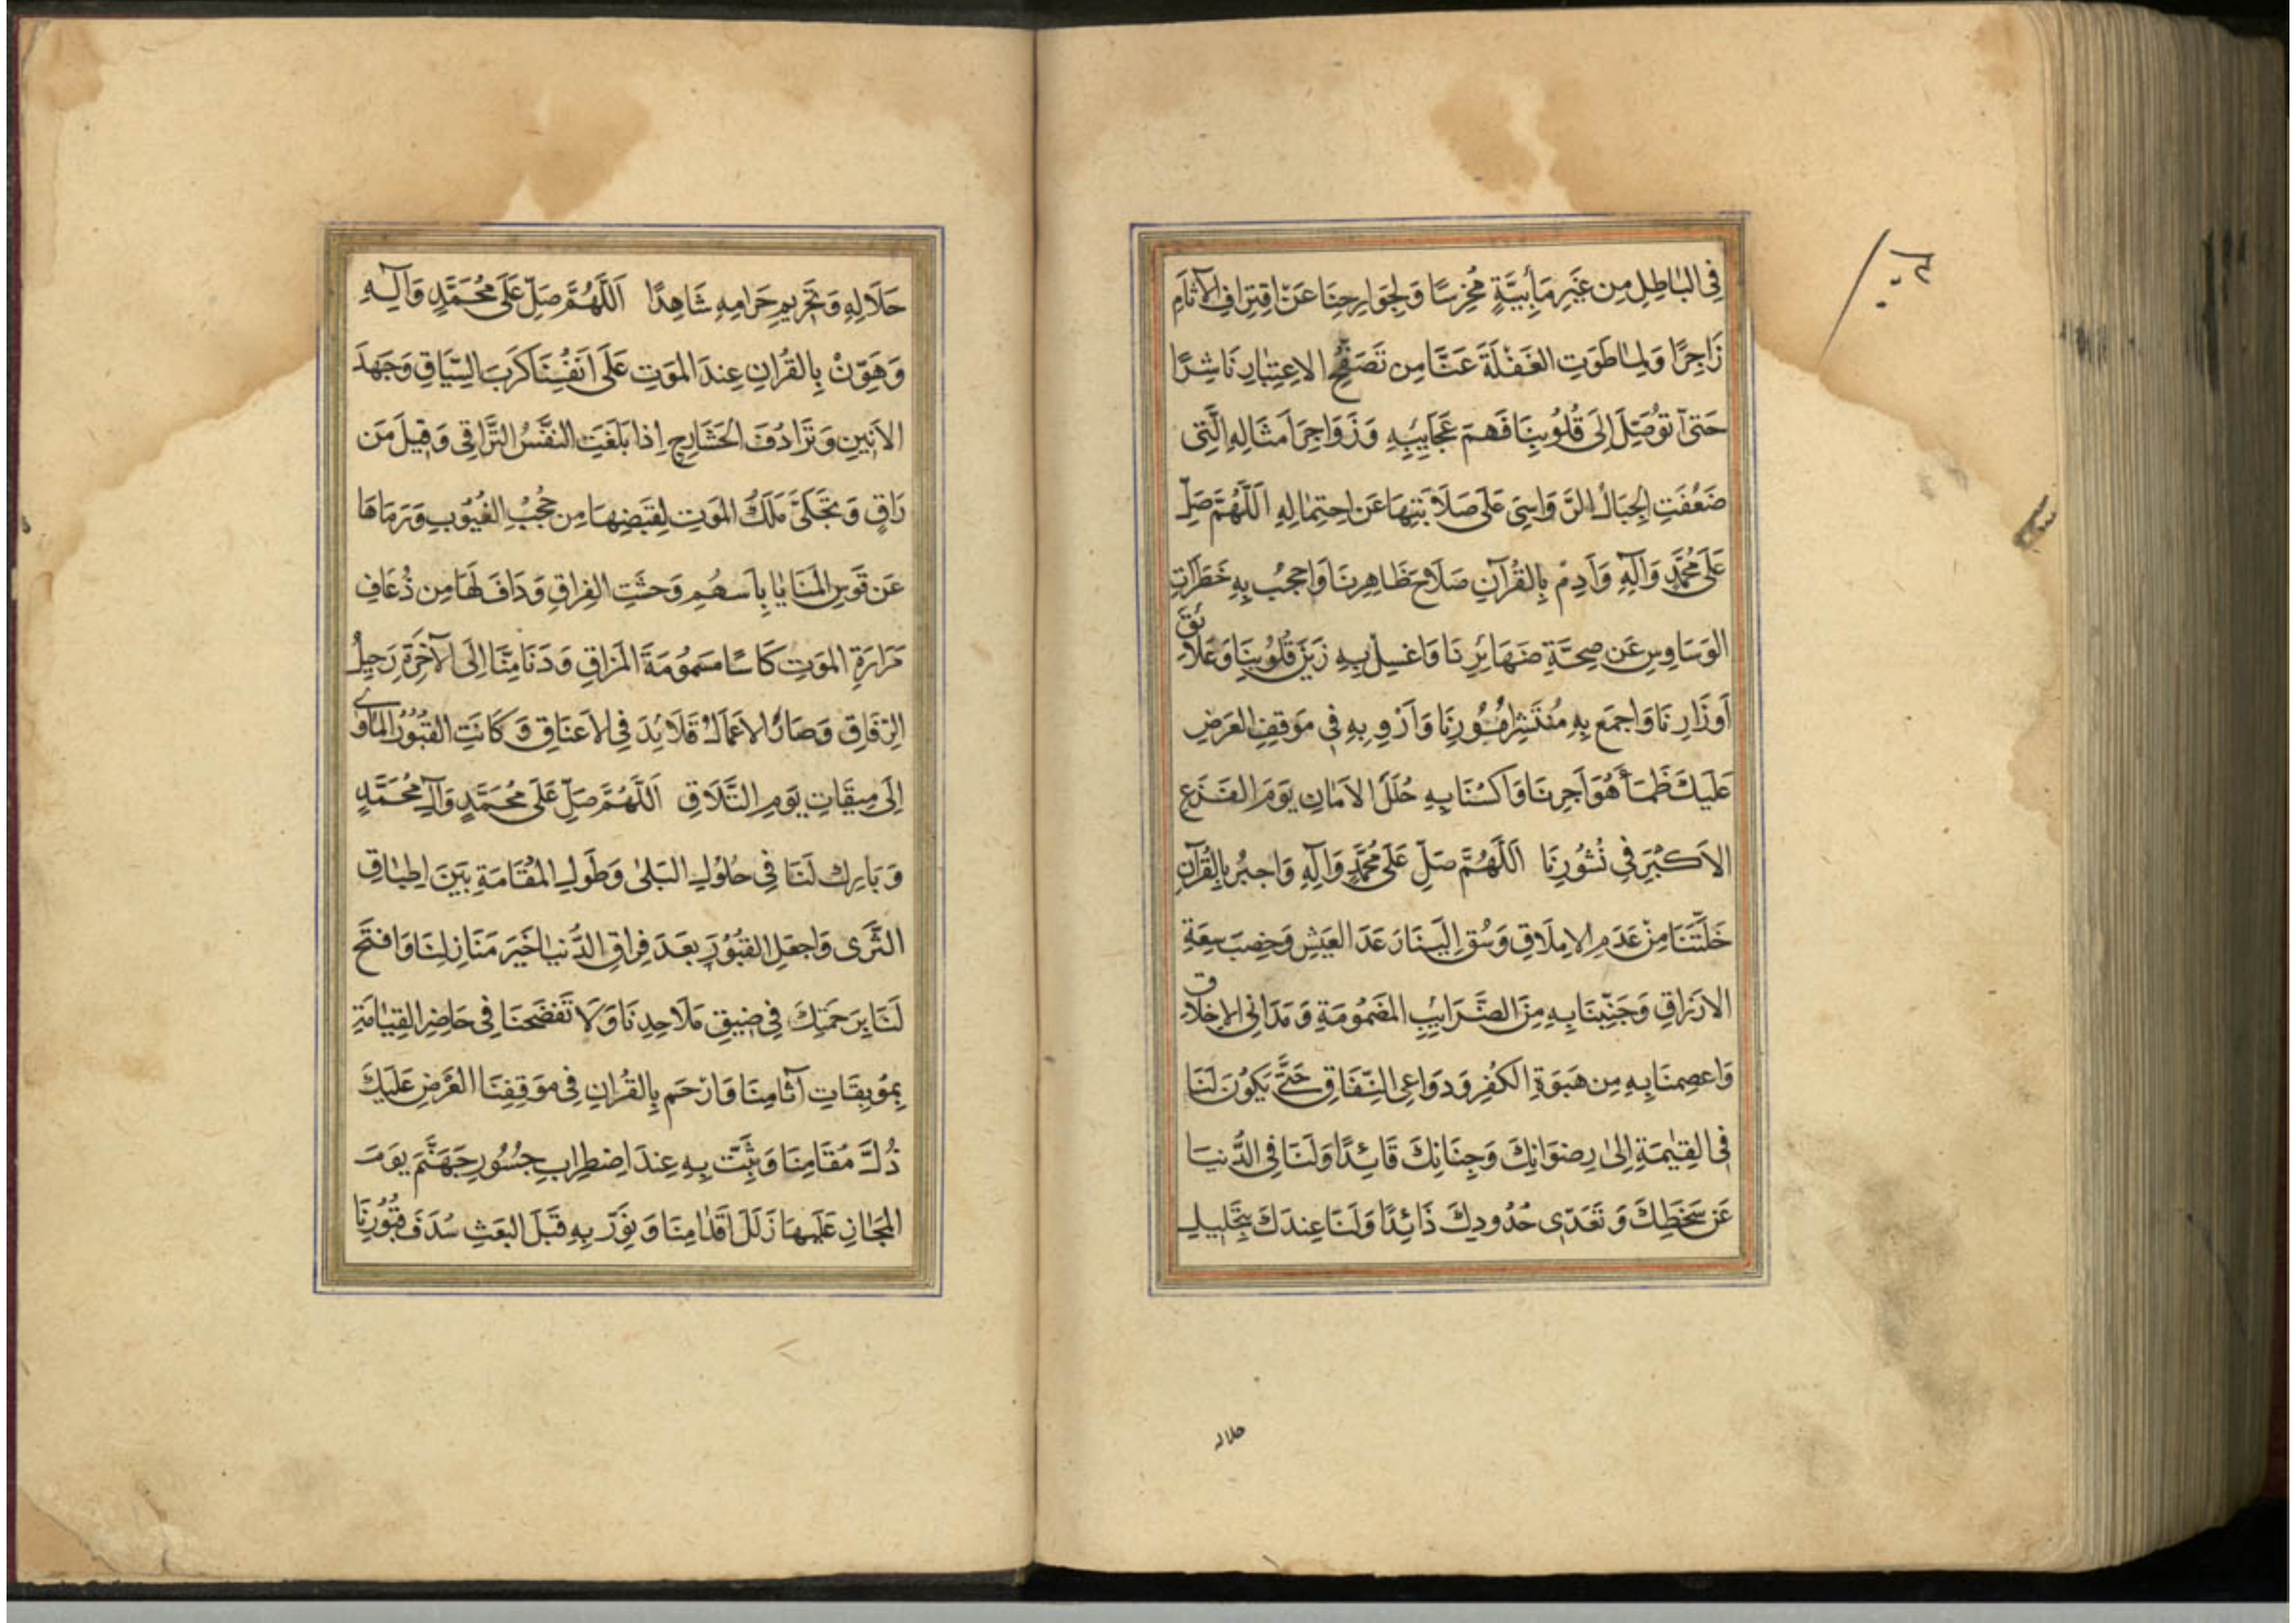 فِي البَاطِلِ مِن غَيرِ مَأبِيَّةٍ مُخرِسًا وَلِجَوَارِحِنَا عَن اقتِرَافِ الآثَامِ
زَاجِرًا وَلِمَا طَوَتِ الغَفلَةَ عَنَّا مِن تَصَفُّحِ الاِعتِبَارِ نَاشِرًا
حَتَّى تُوَصِّلَ إِلَى قُلُوبِنَا فَهمَ عَجَايِبِهِ وَزَوَاجِرَ أَمثَالِهِ الَّتِي
ضَعُفَتِ الجِبَالُ الرَّوَاسِي عَلَى صَلَابَتِهَا عَن احتِمَالِهِ اَللَّهُمَّ صَلِّ
عَلَى مُحَمَّدٍ وَآلِهِ وَأَدِمْ بِالقُرآنِ صَلَاحَ ظَاهِرِنَا وَاحجُب بِهِ خَطَرَاتِ
الوَسَاوِسِ عَن صِحَّةِ ضَمَائِرِنَا وَاغسِل بِهِ زَيْنَ قُلُوبِنَا وَعَلَائِقَ
أَوزَارِنَا وَاجمَع بِهِ مُنتَشِرَ أُمُورِنَا وَأَروِ بِهِ فِي مَوقِفِ العَرضِ
عَلَيكَ ظَمَأَ هَوَاجِرِنَا وَاكسُنَا بِهِ حُلَلَ الاَمَانِ يَومَ الفَزَعِ
الاَكبَرِ فِي نُشُورِنَا اَللَّهُمَّ صَلِّ عَلَى مُحَمَّدٍ وَآلِهِ وَاجبُر بِالقُرآنِ
خَلَّتَنَا مِنْ عَدَمِ الاِملَاقِ وَسُق اِلَينَا رَغَدَ العَيشِ وَخِصبَ سِعَةِ
الاَرزَاقِ وَجَنِّبنَا بِهِ مِنَ الضَّرَائِبِ المَضمُومَةِ وَمَدَانِي الاِخلَاق
وَاعصِمنَا بِهِ مِن هَبوَةِ الكُفرِ وَدَوَاعِي النِّفَاقِ حَتَّى يَكُونَ لَنَا
فِي القِيٰمَةِ اِلَى رِضوَانِكَ وَجِنَانِكَ قَائِدًا وَلَنَا فِي الدُّنيَا
عَن سَخَطِكَ وَتَعَدِّي حُدُودِكَ ذَائِدًا وَلَنَا عِندَكَ بِتَحلِيلِ
حلاله
حَلَالِهِ وَتَحرِيمِ حَرَامِهِ شَاهِدًا اَللَّهُمَّ صَلِّ عَلَى مُحَمَّدٍ وَآلِهِ
وَهَوِّنْ بِالقُرانِ عِندَ المَوتِ عَلَى اَنفُسِنَا كَربَ السِّيَاقِ وَجَهدَ
الاَنِينِ وَتَرَادُفَ الحَشَارِجِ اِذَا بَلَغَتِ النَّفسُ التَّرَاقِي وَقِيلَ مَن
رَاقٍ وَتَجَلَّى مَلَكُ المَوتِ لِقَبضِهَا مِن حُجُبِ الغُيُوبِ وَرَمَاهَا
عَن قَوسِ المَنَايَا بِاَسهُمِ وَحشَتِ الفِرَاقِ وَدَافَ لَهَا مِن ذُعَافِ
مَرَارَةِ المَوتِ كَاسًا مَسمُومَةَ المَزَاقِ وَدَنَا مِنَّا اِلَى الآخِرَةِ رَحِيلُ
الِرفَاقِ وَصَارَ الاَعمَالُ قَلَائِدَ فِي الاَعنَاقِ وَكَانَتِ القُبُورُ المَاوَى
اِلَى مِيقَاتِ يَومِ التَّلَاقِ اَللَّهُمَّ صَلِّ عَلَى مُحَمَّدٍ وَآلِ مُحَمَّدٍ
وَبَارِك لَنَا فِي حُلُولِ البَلَى وَطُولِ المُقَامَةِ بَينَ اِطبَاقِ
الثَّرَى وَاجعَلِ القُبُورَ بَعدَ فِرَاقِ الدُّنيَا خَيرَ مَنَازِلِنَا وَافتَح
لَنَا بِرَحمَتِكَ فِي ضِيقِ مَلَاحِدِنَا وَلَا تَفضَحنَا فِي حَاضِرِ القِيَامَةِ
بِمُوبِقَاتِ آثَامِنَا وَارحَم بِالقُرانِ فِي مَوقِفِنَا العَرضِ عَلَيكَ
ذُلَّ مُقَامِنَا وَثَبِّت بِهِ عِندَ اضطِرَابِ جُسُورِ جَهَنَّمَ يَومَ
المَجَازِ عَلَيهَا زَلَلَ اَقدَامِنَا وَنَوِّر بِهِ قَبلَ البَعثِ سُدَفَ قُبُورِنَا